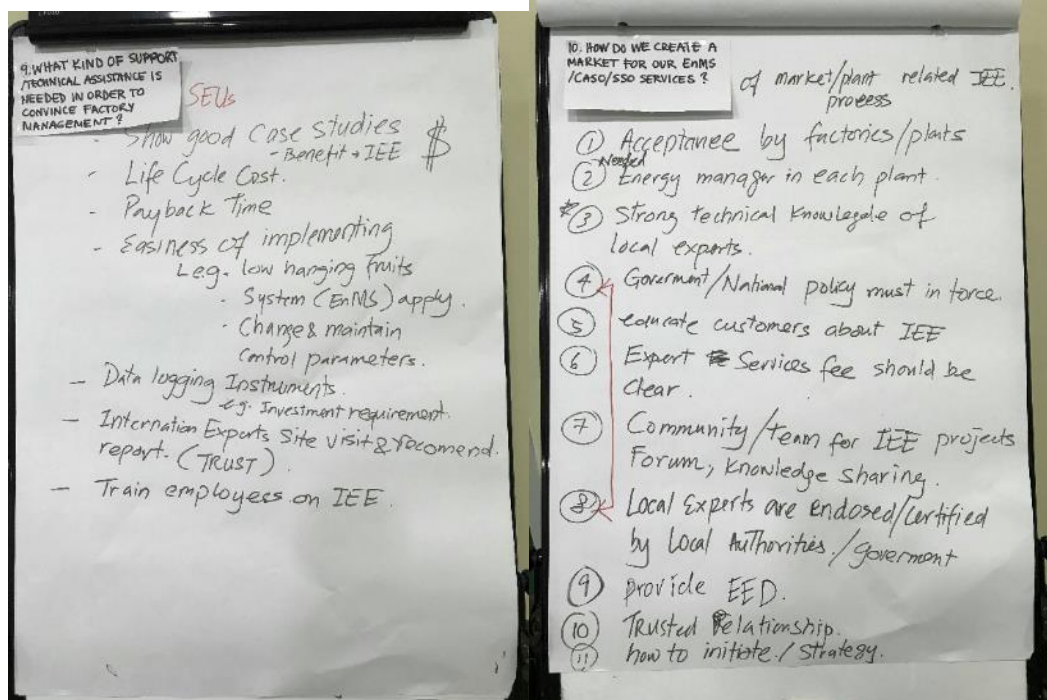 9. WHAT KIND OF SUPPORT
/TECHNICAL ASSISTANCE IS
NEEDED IN ORDER TO
CONVINCE FACTORY
MANAGEMENT ?
SEUs
- Show good Case Studies
- Benefit → IEE
$
- Life Cycle Cost.
- Payback Time
- Easiness of implementing
L e.g. low hanging fruits
- System (EnMS) apply.
- Change & maintain
Control parameters.
- Data logging Instruments.
e.g. Investment requirement.
- Internation Experts Site visit & recomend.
report. (TRUST)
- Train employees on IEE.
10. HOW DO WE CREATE A
MARKET FOR OUR EnMS
/CASO/SSO SERVICES ?
of market/plant related IEE.
process
① Acceptance by factories/plants
Needed
② Energy manager in each plant.
* ③ Strong technical Knowlegde of
local experts.
④ Goverment/National policy must in force.
⑤ educate customers about IEE
⑥ Expert Services fee should be
Clear.
⑦ Community/team for IEE projects
Forum, Knowledge sharing.
⑧ Local Experts are endosed/certified
by Local Authorities./goverment
⑨ provide EED.
⑩ Trusted Relationship.
⑪ how to initiate./ Strategy.